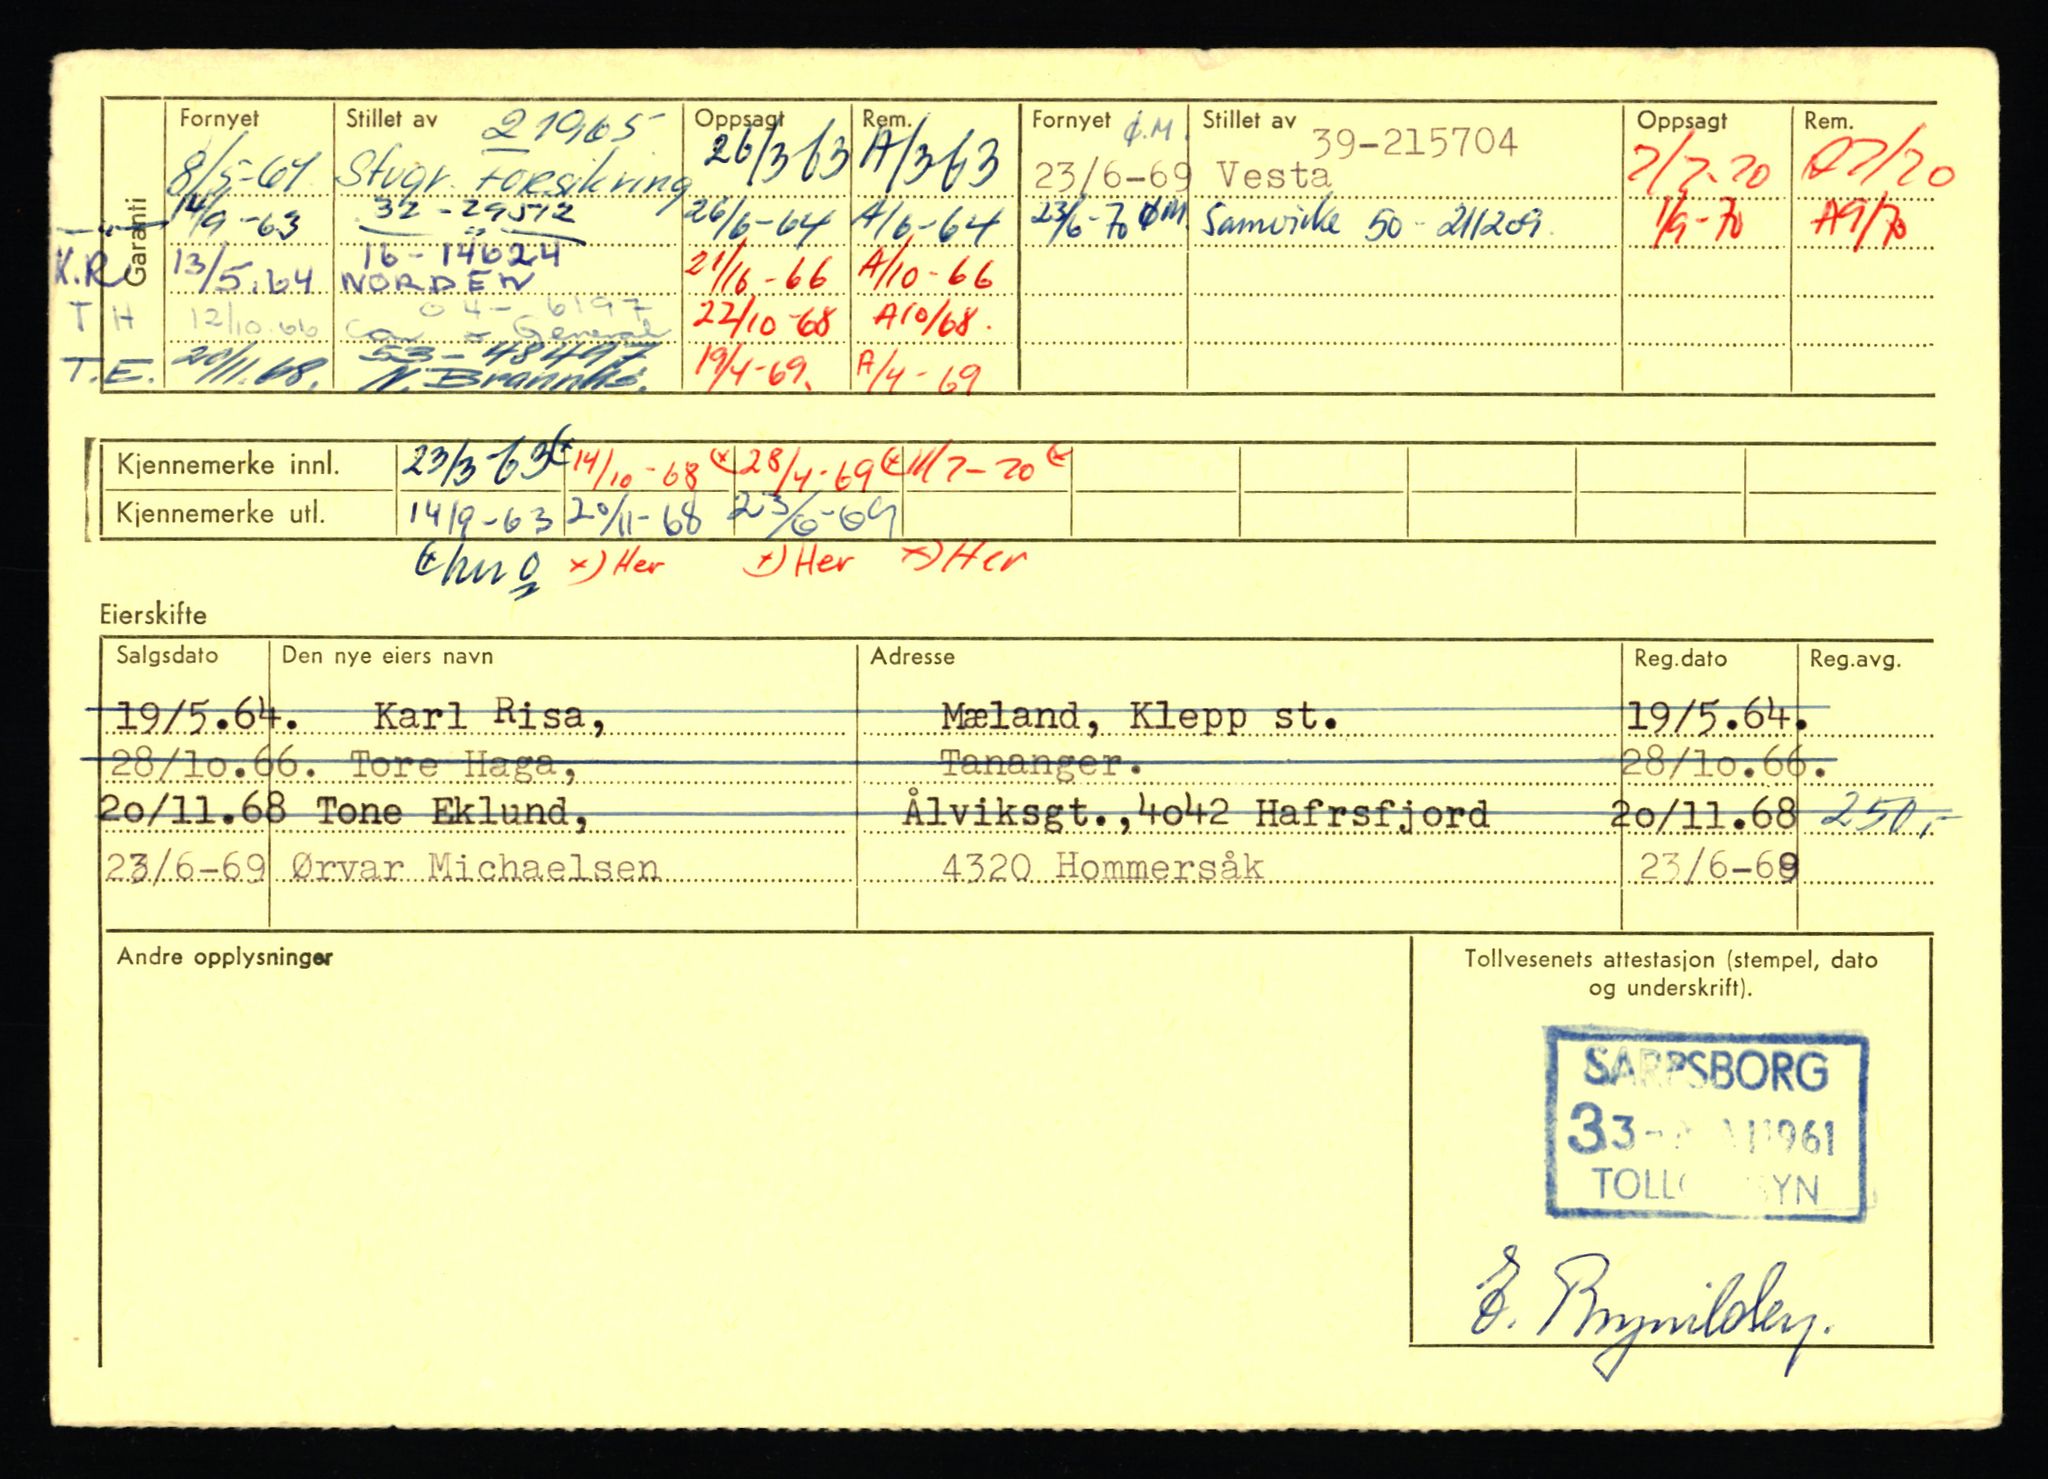 Garanti
Fornyet Stillet av Oppsagt Rem. Fornyet Stillet av Oppsagt Rem.
21965 Ø.M. 39-215704
8/5-61 Stvgr. Forsikring 26/3 63 A/3 63 23/6-69 Vesta 7/7-70 A7/70
14/9-63 32-29572 26/6-64 A/6-64 23/6-70 ØM Samvirke 50-211209. 1/9-70 A9/70
16-14624
K.R. 13/5.64 NORDEN 21/10-66 A/10-66
04-6197
T H 12/10.66 General 22/10-68 A10/68.
53-48497
T.E. 20/11.68. N. Brannks. 19/4-69. A/4-69
Kjennemerke innl. 23/3-63 (x 14/10-68 (x 28/4-69 (x 11/7-70 (x
Kjennemerke utl. 14/9-63 20/11-68 23/6-69
x) Her x) Her x) Her
Eierskifte
Salgsdato Den nye eiers navn Adresse Reg.dato Reg.avg.
19/5.64. Karl Risa, Mæland, Klepp st. 19/5.64.
28/10.66. Tore Haga, Tananger. 28/10.66.
20/11.68 Tone Eklund, Ålviksgt.,4042 Hafrsfjord 20/11.68 250,-
23/6-69 Ørvar Michaelsen 4320 Hommersåk 23/6-69
Andre opplysninger
Tollvesenets attestasjon (stempel, dato
og underskrift).
SARPSBORG
33- 1961
E. Brynildsen.